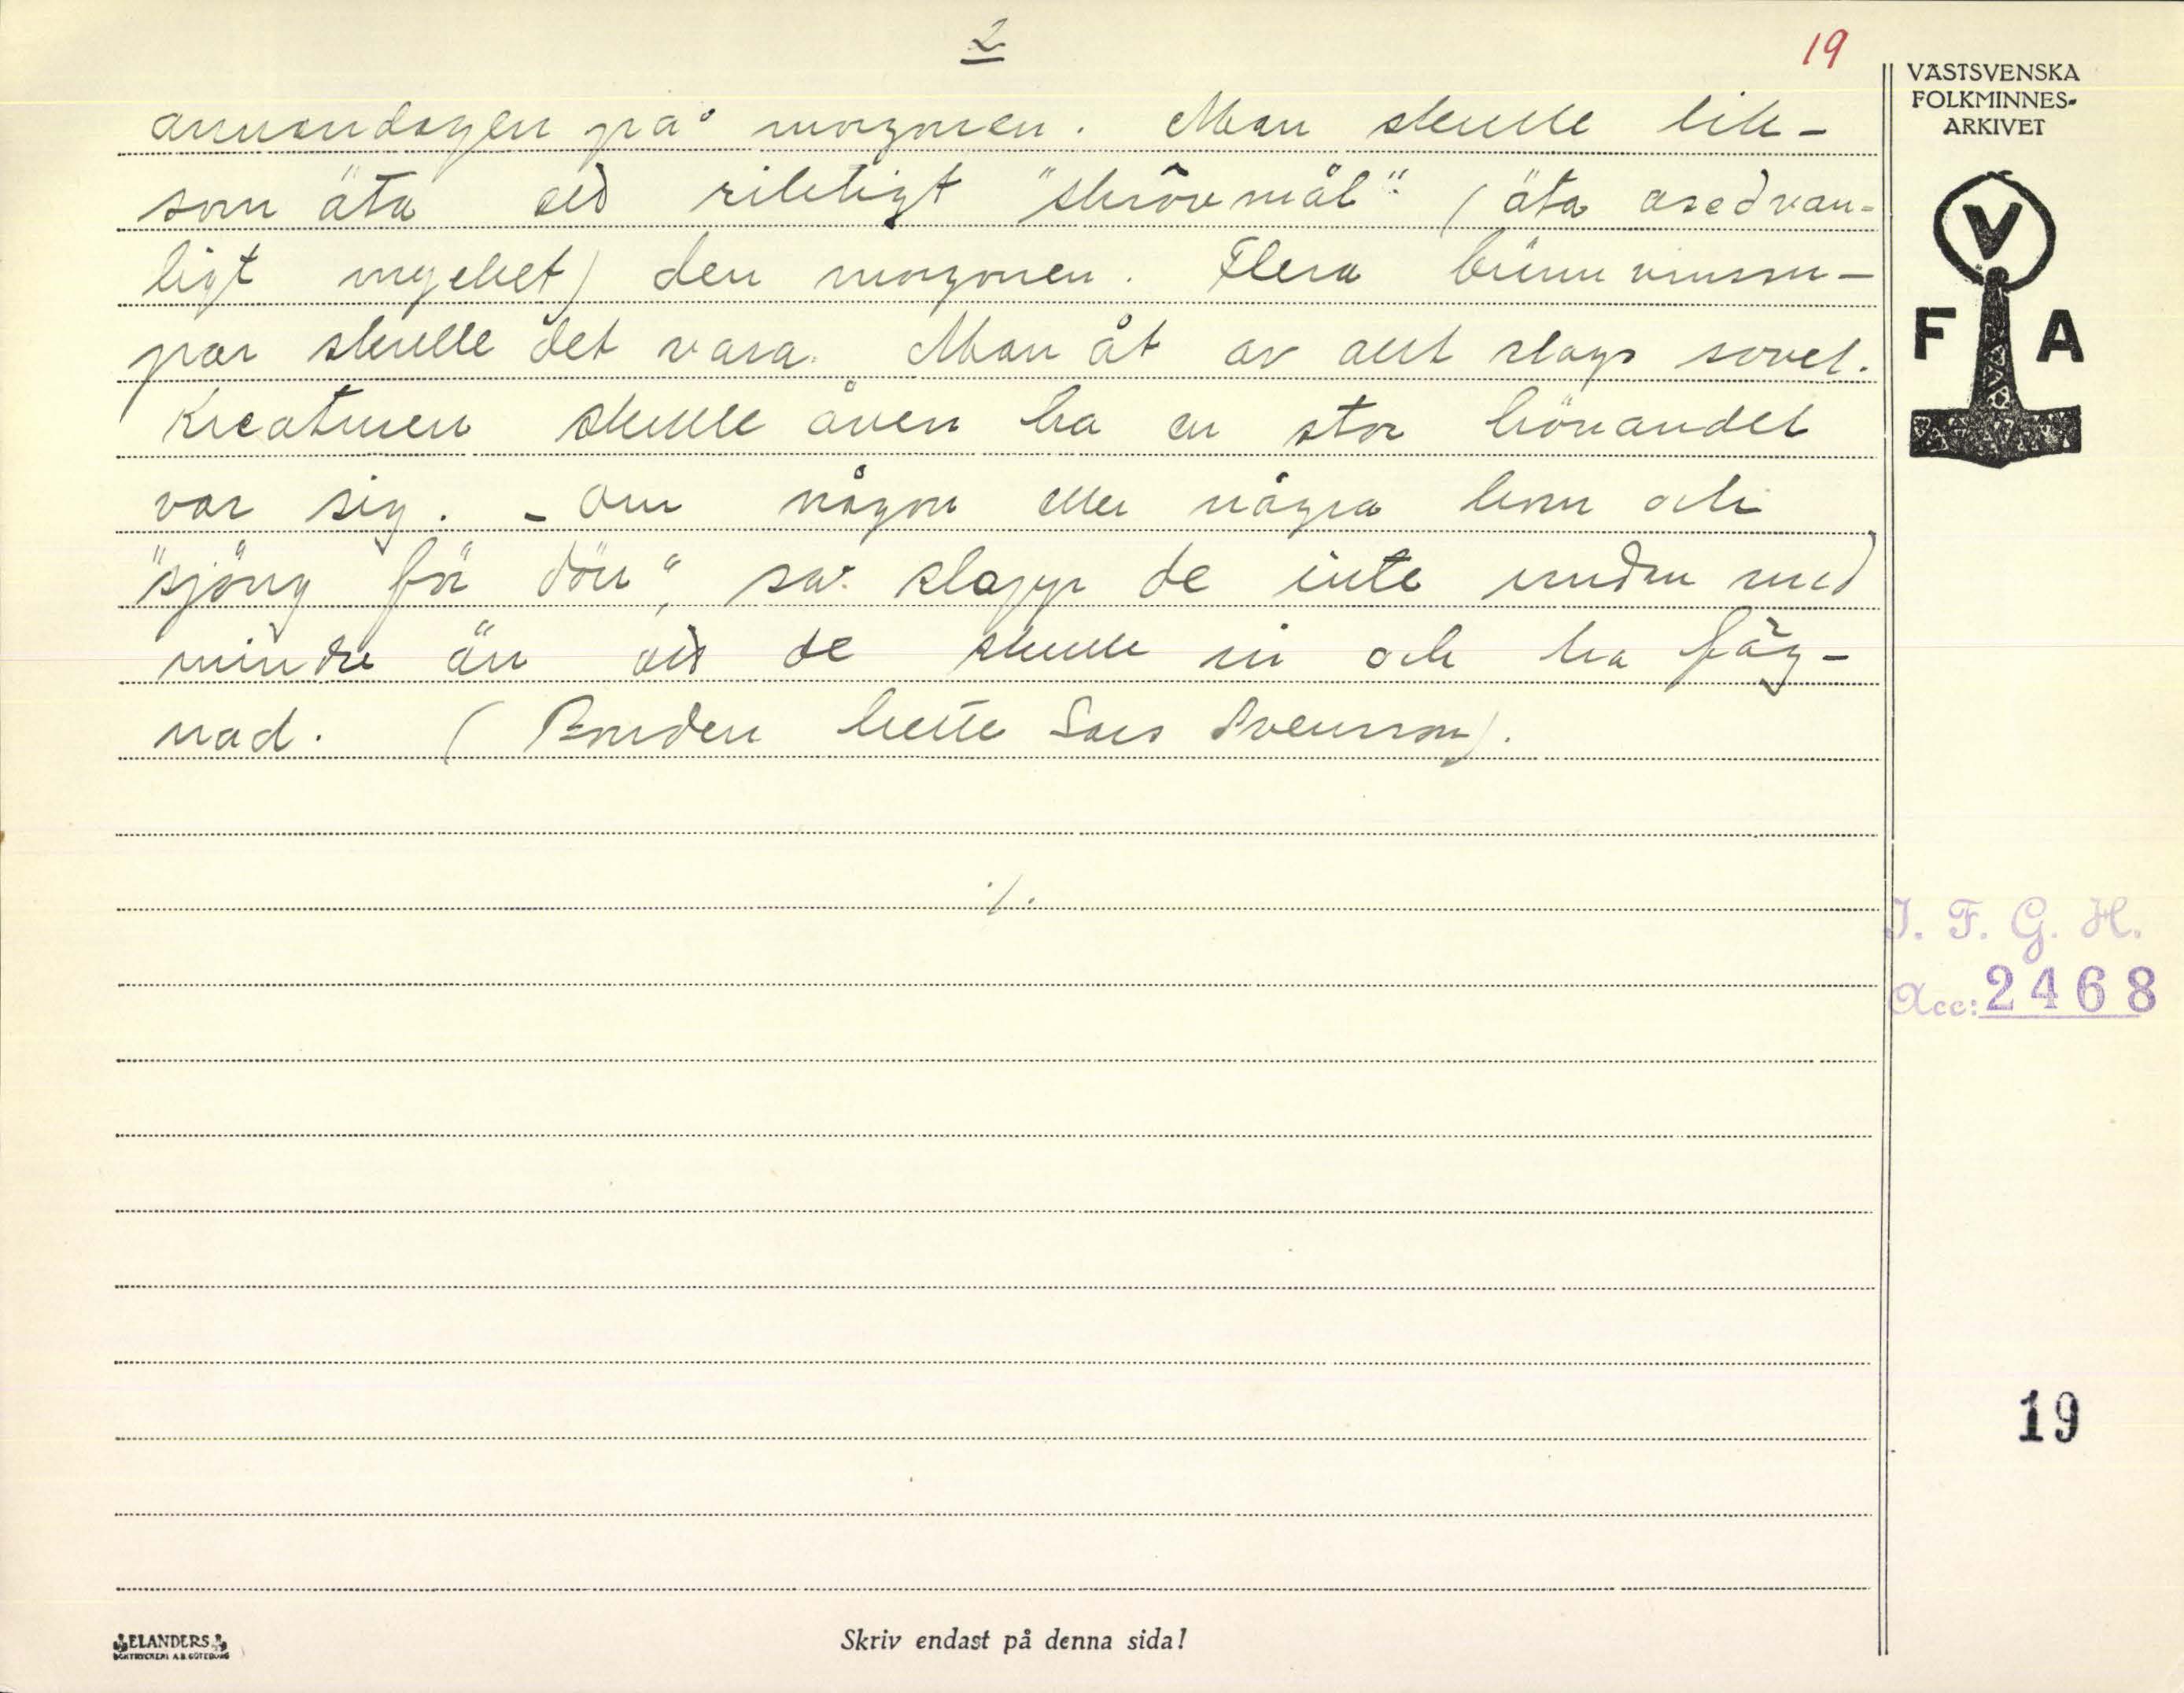 2
19
VÄSTSVENSKA
FOLKMINNES-
ARKIVET
V
F A
annandagen på morgonen. Man skulle lik-
som äta ett riktigt "skrôvmål" (äta osedvan-
ligt mycket) den morgonen. Flera brännvinssu-
par skulle det vara. Man åt av allt slags sovel.
Kreaturen skulle även ha en stor höandel
var sig. - Om någon eller några kom och
"sjöng för dön", så slapp de inte undan med
mindre än att de skulle in och ha fäg-
nad. (Bonden hette Lars Svensson).
./.
I. F. G. H.
Acc: 2468
19
ELANDERS
BOKTRYCKERI A.B. GÖTEBORG
Skriv endast på denna sida!